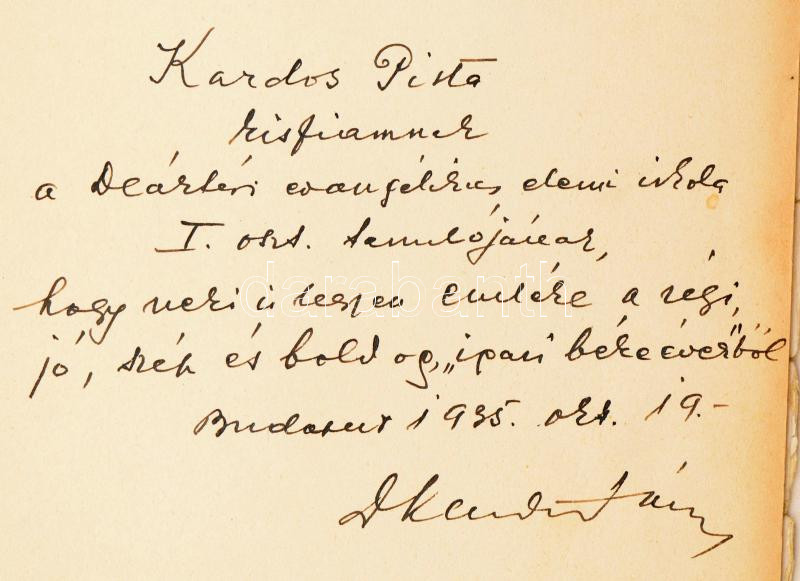 Kardos Pista
kisfiamnak
a Deáktéri evangélikus elemi iskola
I. oszt. tanulójának,
hogy neki is legyen emléke a régi,
jó, szép és boldog, „ipari békeévek"ből
Budapest 1935. okt. 19.-
darabanth.com